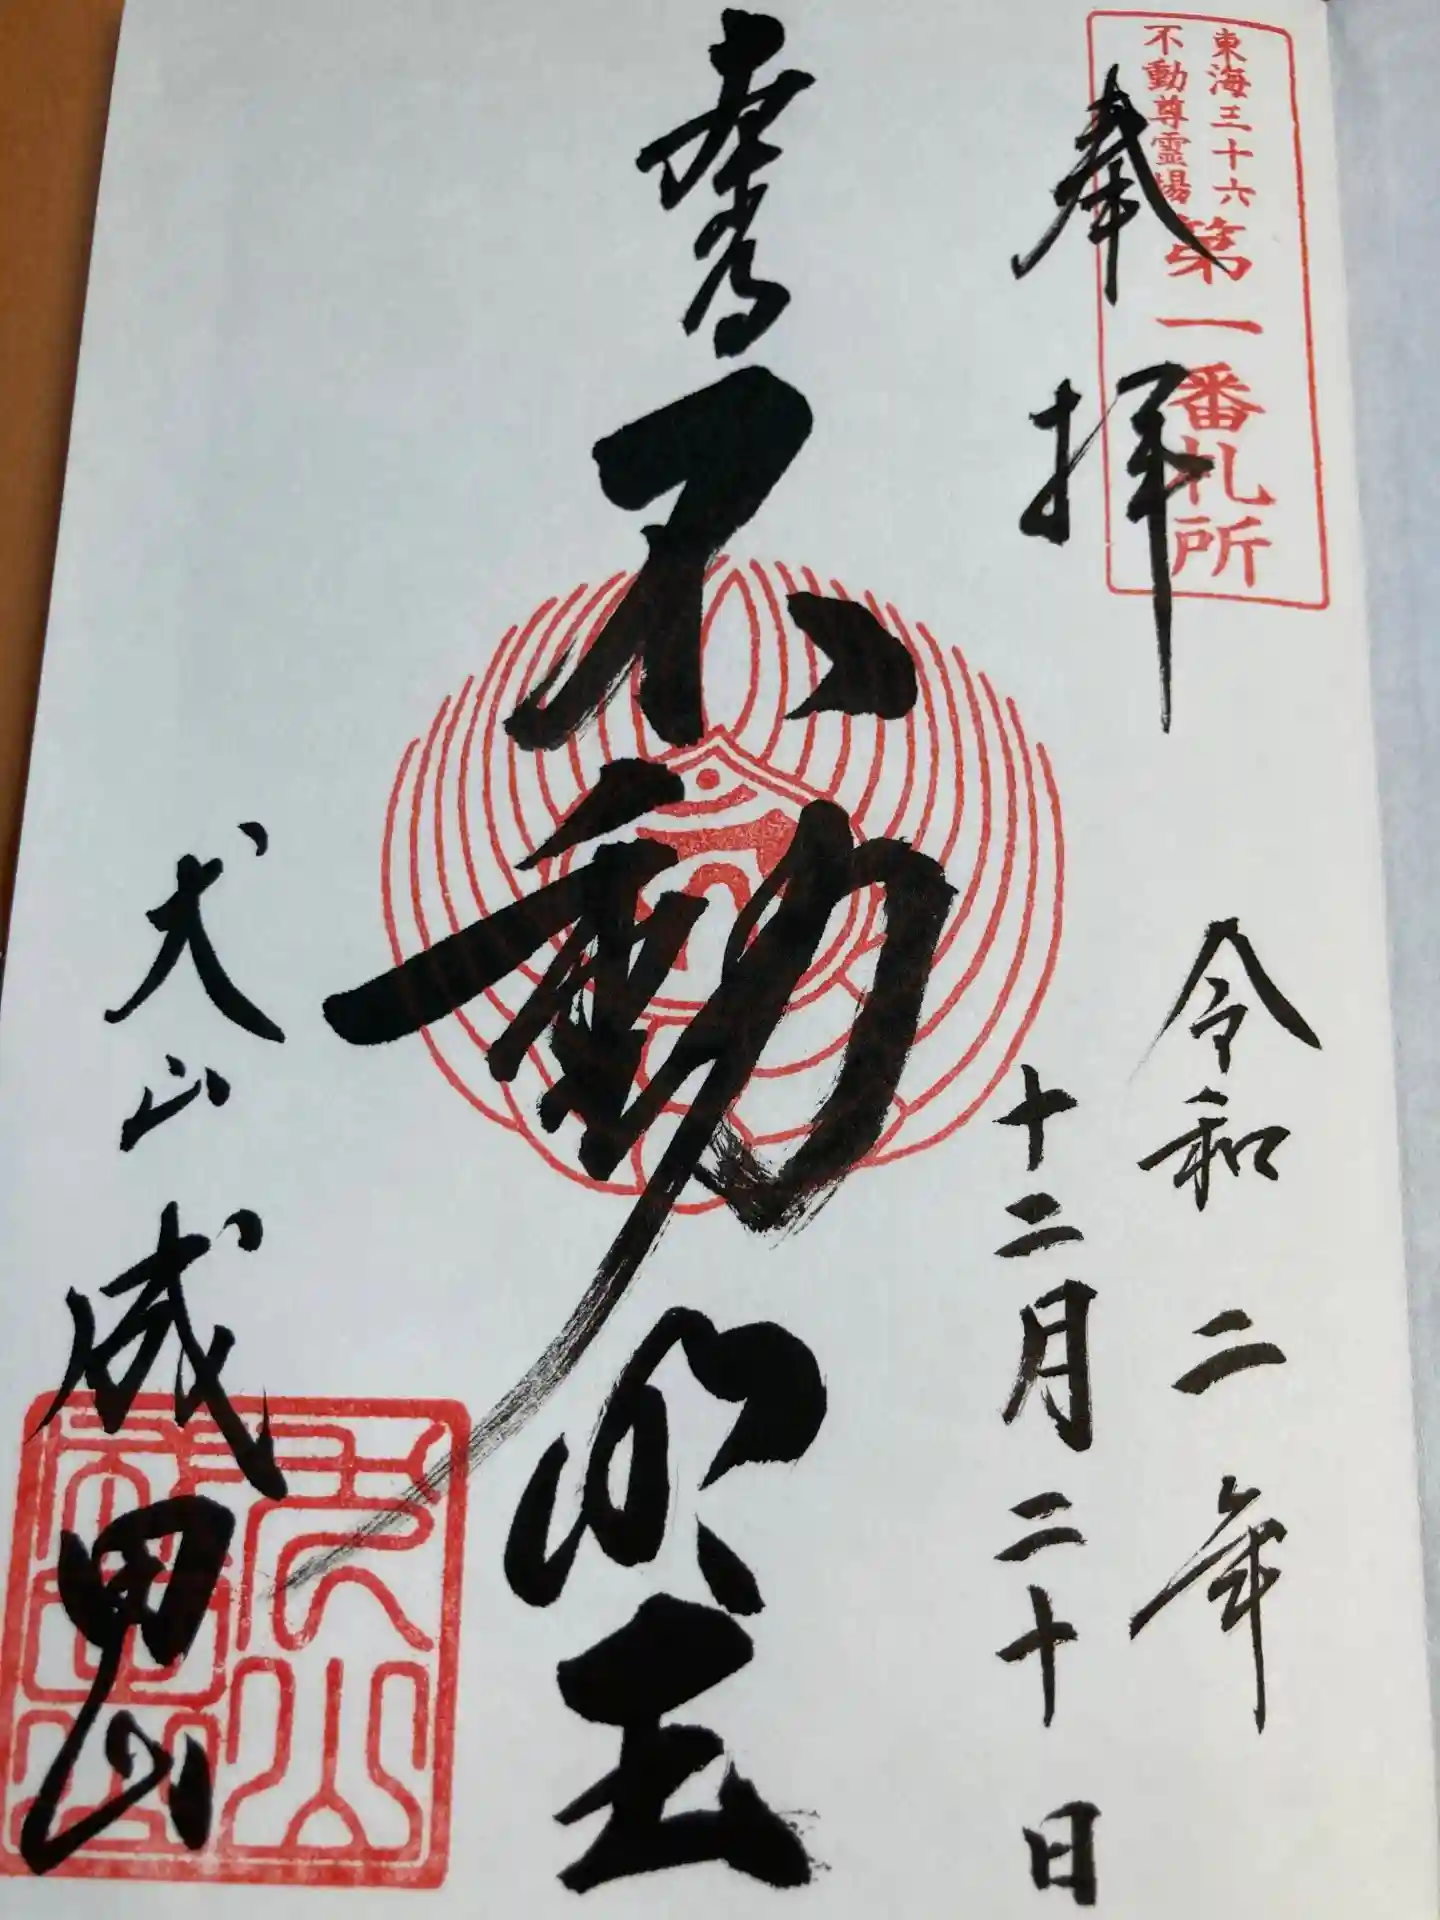 東海三十六
不動尊霊場
第一番札所
奉拝
令和二年
十二月二十日
不動明王
犬山成田山